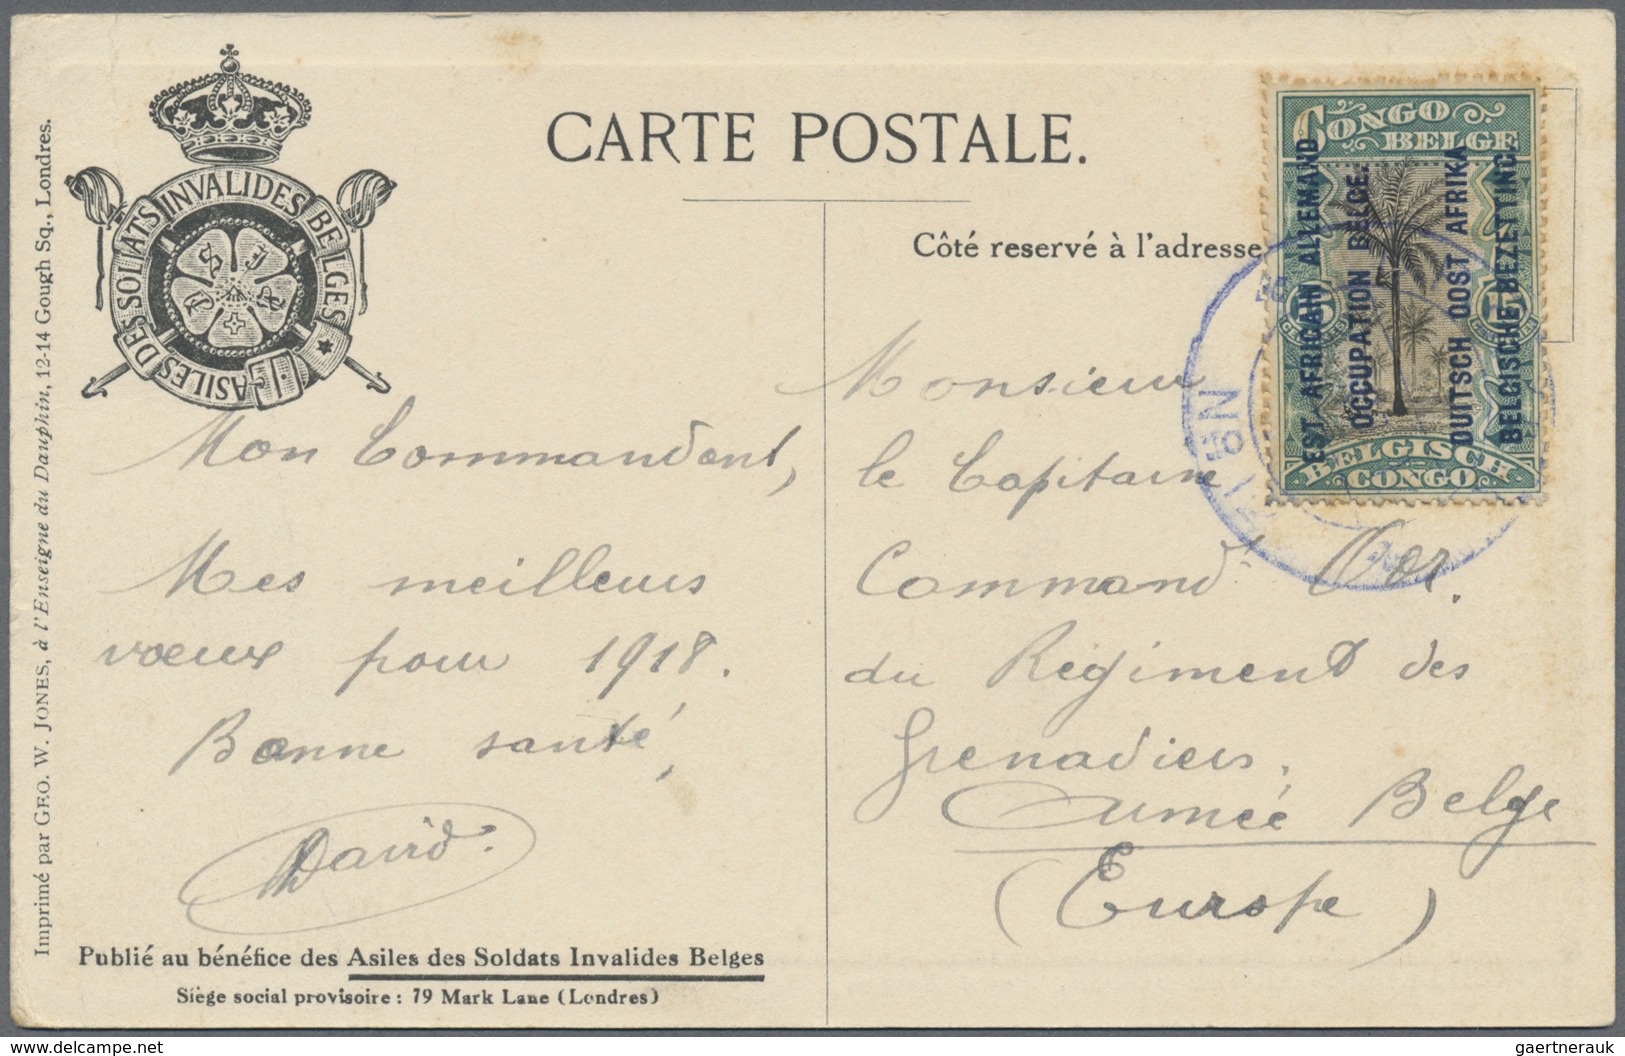 CARTE POSTALE.
Côté reservé à l'adresse
ASILES DES SOLDATS INVALIDES BELGES
S I
Imprimé par GEO. W. JONES, à l'Enseigne du Dauphin, 12-14 Gough Sq., Londres.
CONGO
BELGE
EST AFRICAIN ALLEMAND
OCCUPATION BELGE.
DUITSCH OOST AFRIKA
BELGISCHE BEZETTING.
15 15
BELGISCH
CONGO
Mon Commandant,
Mes meilleurs
vœux pour 1918.
Bonne santé,
David.
Monsieur
le Capitaine
Command t
du Régiment des
Grenadiers.
Armée Belge
(Europe)
Publié au bénéfice des Asiles des Soldats Invalides Belges
Siège social provisoire : 79 Mark Lane (Londres)
www.delcampe.net
gaertnerauk